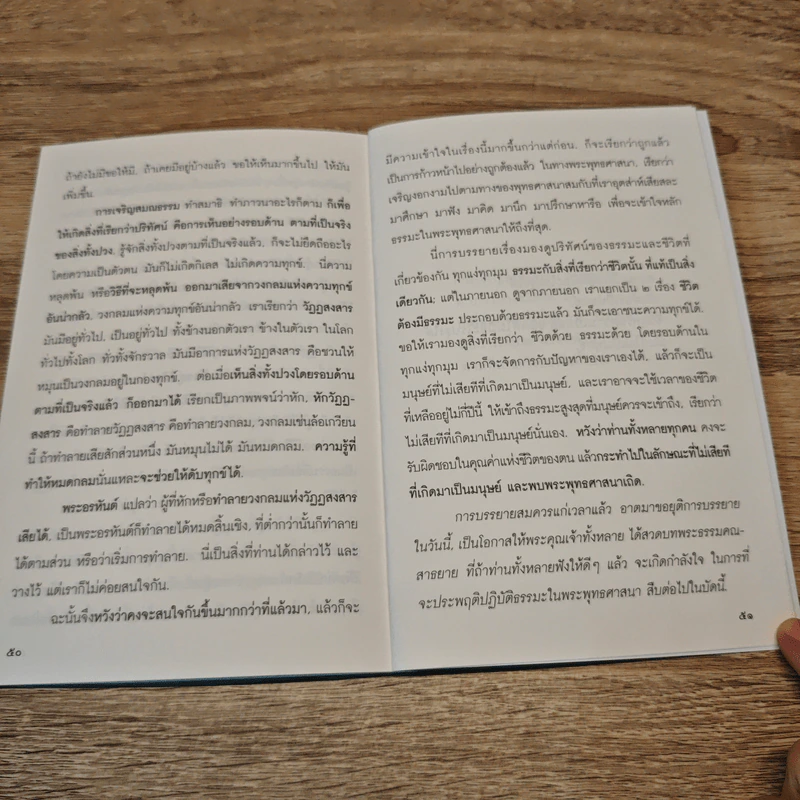 ถ้ายังไม่มีขอให้มี. ถ้าเคยมีอยู่บ้างแล้ว ขอให้เห็นมากขึ้นไป ให้มัน
เพิ่มขึ้น.
การเจริญสมณธรรม ทำสมาธิ ทำภาวนาอะไรก็ตาม ก็เพื่อ
ให้เกิดสิ่งที่เรียกว่าปริทัศน์ คือการเห็นอย่างรอบด้าน ตามที่เป็นจริง
ของสิ่งทั้งปวง. รู้จักสิ่งทั้งปวงตามที่เป็นจริงแล้ว, ก็จะไม่ยึดถืออะไร
โดยความเป็นตัวตน มันก็ไม่เกิดกิเลส ไม่เกิดความทุกข์. นี่ความ
หลุดพ้น หรือวิธีที่จะหลุดพ้น ออกมาเสียจากวงกลมแห่งความทุกข์
อันน่ากลัว. วงกลมแห่งความทุกข์อันน่ากลัว เราเรียกว่า วัฏฏสงสาร
มันมีอยู่ทั่วไป, เป็นอยู่ทั่วไป ทั้งข้างนอกตัวเรา ข้างในตัวเรา ในโลก
ทั่วไปทั้งโลก ทั่วทั้งจักรวาล มันมีอาการแห่งวัฏฏสงสาร คือชวนให้
หมุนเป็นวงกลมอยู่ในกองทุกข์. ต่อเมื่อเห็นสิ่งทั้งปวงโดยรอบด้าน
ตามที่เป็นจริงแล้ว ก็ออกมาได้ เรียกเป็นภาพพจน์ว่าหัก. หักวัฏฏ-
สงสาร คือทำลายวัฏฏสงสาร คือทำลายวงกลม, วงกลมเช่นล้อเกวียน
นี้ ถ้าทำลายเสียสักส่วนหนึ่ง มันหมุนไม่ได้ มันหมดกลม. ความรู้ที่
ทำให้หมดกลมนั่นแหละจะช่วยให้ดับทุกข์ได้.
พระอรหันต์ แปลว่า ผู้ที่หักหรือทำลายวงกลมแห่งวัฏฏสงสาร
เสียได้, เป็นพระอรหันต์ก็ทำลายได้หมดสิ้นเชิง, ที่ต่ำกว่านั้นก็ทำลาย
ได้ตามส่วน หรือว่าเริ่มการทำลาย. นี่เป็นสิ่งที่ท่านได้กล่าวไว้ และ
วางไว้ แต่เราก็ไม่ค่อยสนใจกัน.
ฉะนั้นจึงหวังว่าคงจะสนใจกันขึ้นมากกว่าที่แล้วมา, แล้วก็จะ
๕๐
มีความเข้าใจในเรื่องนี้มากขึ้นกว่าแต่ก่อน. ก็จะเรียกว่าถูกแล้ว
เป็นการก้าวหน้าไปอย่างถูกต้องแล้ว ในทางพระพุทธศาสนา. เรียกว่า
เจริญงอกงามไปตามทางของพุทธศาสนาสมกับที่เราอุตส่าห์เสียสละ
มาศึกษา มาฟัง มาคิด มานึก มาปรึกษาหารือ เพื่อจะเข้าใจหลัก
ธรรมะในพระพุทธศาสนาให้ถึงที่สุด.
นี่การบรรยายเรื่องมองดูปริทัศน์ของธรรมะและชีวิตที่
เกี่ยวข้องกัน ทุกแง่ทุกมุม ธรรมะกับสิ่งที่เรียกว่าชีวิตนั้น ที่แท้เป็นสิ่ง
เดียวกัน; แต่ในภายนอก ดูจากภายนอก เราแยกเป็น ๒ เรื่อง ชีวิต
ต้องมีธรรมะ ประกอบด้วยธรรมะแล้ว มันก็จะเอาชนะความทุกข์ได้.
ขอให้เรามองดูสิ่งที่เรียกว่า ชีวิตด้วย ธรรมะด้วย โดยรอบด้านใน
ทุกแง่ทุกมุม เราก็จะจัดการกับปัญหาของเราเองได้. แล้วก็จะเป็น
มนุษย์ที่ไม่เสียทีที่เกิดมาเป็นมนุษย์, และเราอาจจะใช้เวลาของชีวิต
ที่เหลืออยู่ไม่กี่ปีนี้ ให้เข้าถึงธรรมะสูงสุดที่มนุษย์ควรจะเข้าถึง, เรียกว่า
ไม่เสียทีที่เกิดมาเป็นมนุษย์นั่นเอง. หวังว่าท่านทั้งหลายทุกคน คงจะ
รับผิดชอบในคุณค่าแห่งชีวิตของตน แล้วกระทำไปในลักษณะที่ไม่เสียที
ที่เกิดมาเป็นมนุษย์ และพบพระพุทธศาสนาเถิด.
การบรรยายสมควรแก่เวลาแล้ว อาตมาขอยุติการบรรยาย
ในวันนี้, เป็นโอกาสให้พระคุณเจ้าทั้งหลาย ได้สวดบทพระธรรมคณ-
สาธยาย ที่ถ้าท่านทั้งหลายฟังให้ดีๆ แล้ว จะเกิดกำลังใจ ในการที่
จะประพฤติปฏิบัติธรรมะในพระพุทธศาสนา สืบต่อไปในบัดนี้.
๕๑